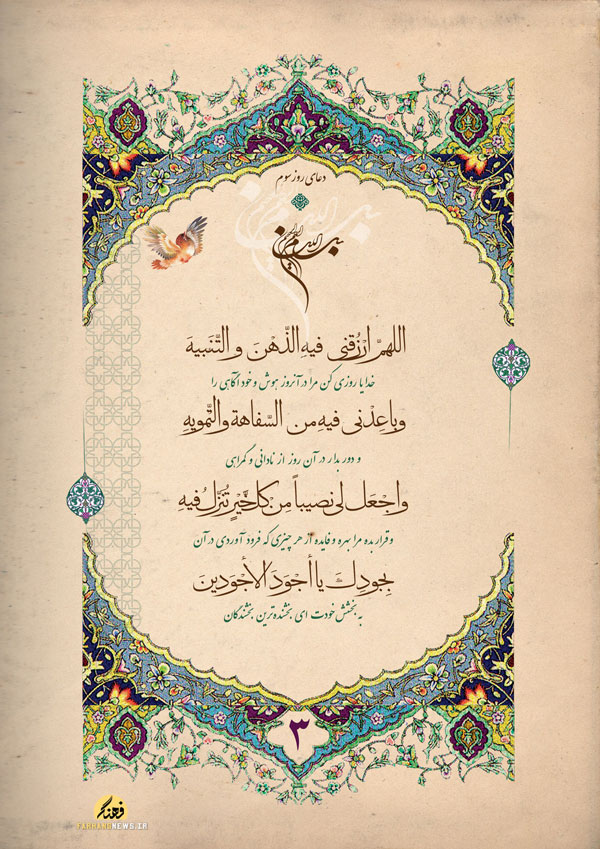 دعای روز سوم
بسم الله الرحمن الرحیم
اللهمَّ ارْزُقنی فیهِ الذّهْنَ والتّنَبیهَ
خدایا روزی کن مرا در آنروز هوش و خودآگاهی را
وباعِدْنی فیهِ من السّفاهة والتّمویهِ
و دور بدار در آن روز از نادانی و گمراهی
واجْعَل لی نصیباً مِن کلّ خَیْرٍ تُنَزّلُ فیهِ
و قرار بده مرا بهره و فایده از هر چیزی که فرود آوردی در آن
بِجودِكَ یا أجْوَدَ الأجْوَدینَ
به بخشش خودت ای بخشنده ترین بخشندگان
۳
فرهنگ
FARHANGNEWS.IR